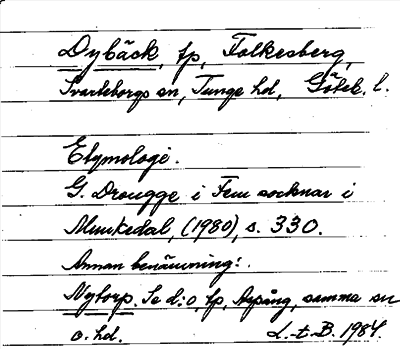 Dybäck, tp, Folkesberg,
Svarteborgs sn, Tunge hd, Göteb. l.
Etymologi.
G. Drougge i Fem socknar i
Munkedal, (1980), s. 330.
Annan benämning:
Nytorp. Se d:o, tp, Aspång, samma sn
o. hd. L-t. B. 1984.